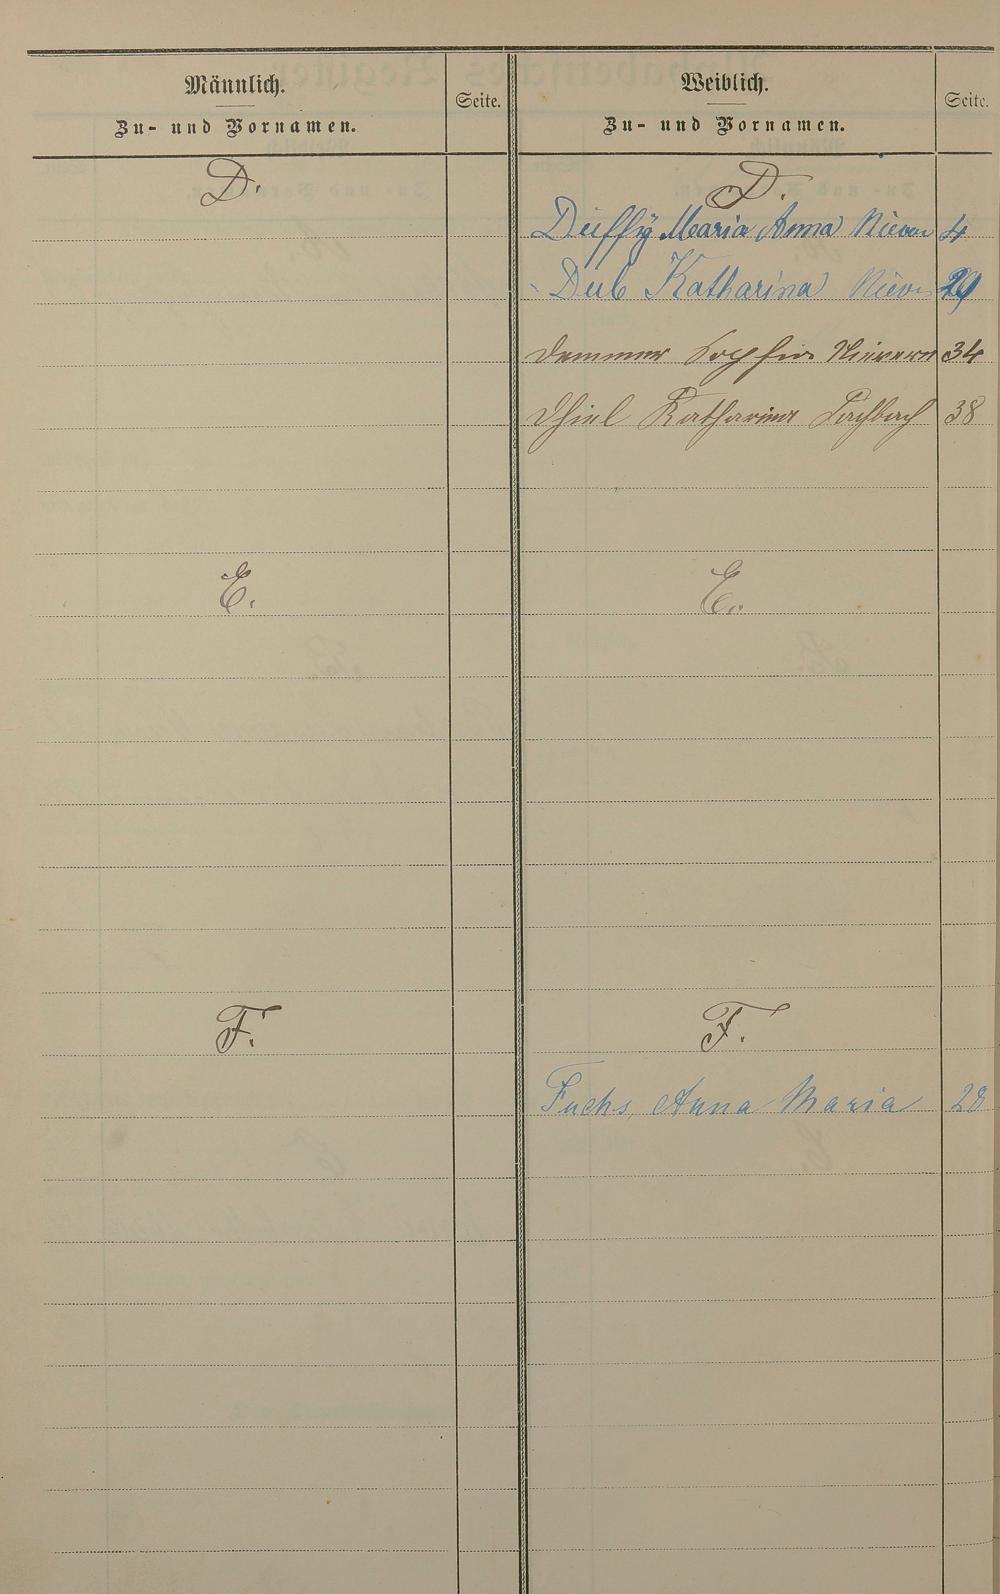 Männlich.
Zu- und Vornamen.
Seite.
Weiblich.
Zu- und Vornamen.
Seite.
D.
D.
Maria Anna Nievern 4
Katharina Nievern 29
Demmer Sophia Nievern 34
Thiel Katharina Fachbach 38
E.
E.
F.
F.
Fuchs, Anna Maria 28